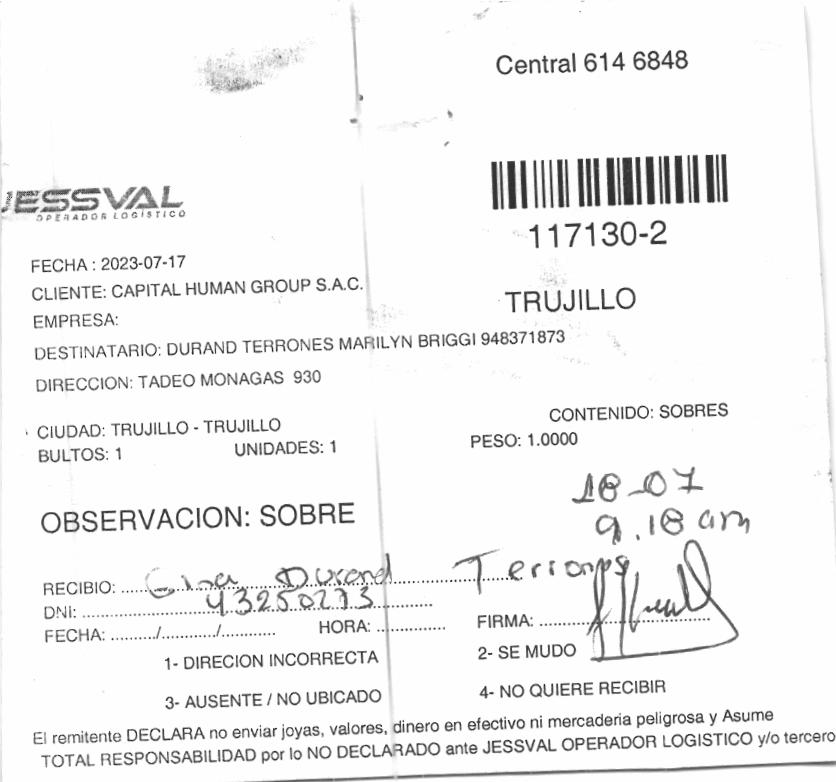 Central 614 6848
JESSVAL
OPERADOR LOGÍSTICO
117130-2
FECHA : 2023-07-17
CLIENTE: CAPITAL HUMAN GROUP S.A.C.
TRUJILLO
EMPRESA:
DESTINATARIO: DURAND TERRONES MARILYN BRIGGI 948371873
DIRECCION: TADEO MONAGAS 930
CONTENIDO: SOBRES
CIUDAD: TRUJILLO - TRUJILLO
BULTOS: 1 UNIDADES: 1 PESO: 1.0000
18-07
9.18 am
OBSERVACION: SOBRE
RECIBIO: Gina Durand Terrones
DNI: 43250273
FECHA: ........./.........../........... HORA: .............. FIRMA: ...................................
1- DIRECION INCORRECTA 2- SE MUDO
3- AUSENTE / NO UBICADO 4- NO QUIERE RECIBIR
El remitente DECLARA no enviar joyas, valores, dinero en efectivo ni mercaderia peligrosa y Asume
TOTAL RESPONSABILIDAD por lo NO DECLARADO ante JESSVAL OPERADOR LOGISTICO y/o tercero